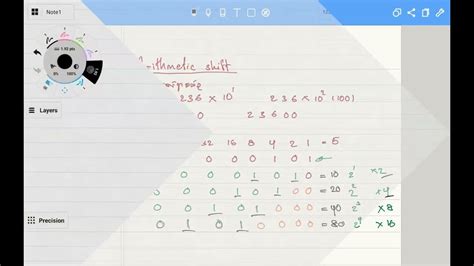 Note1
1.92 pts
0% 100%
Layers
Precision
rithmetic shift
236 × 10¹ 236 × 10² (100)
0 23600
32 16 8 4 2 1 = 5
0 0 0 1 0 1
0 0 1 0 1 0 = 10 2¹ ×2
0 1 0 1 0 0 = 20 2² ×4
0 0 1 0 1 0 0 0 = 40 2³ ×8
0 1 0 1 0 0 0 0 = 80 2⁴ ×16